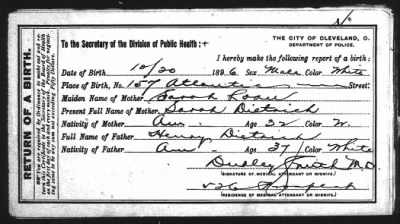 No
THE CITY OF CLEVELAND, O.
DEPARTMENT OF POLICE.
To the Secretary of the Division of Public Health:
I hereby make the following report of a birth:
Date of Birth 10/20 1896 Sex Male Color White
Place of Birth, No. 157 Atlantic Street.
Maiden Name of Mother Sarah
Present Full Name of Mother Sarah Dietrich
Nativity of Mother Am. Age 32 Color W.
Full Name of Father Henry Dietrich
Nativity of Father Am Age 37 Color White
Dudley Smith M.D.
(SIGNATURE OF MEDICAL ATTENDANT OR MIDWIFE.)
526 Prospect
(RESIDENCE OF MEDICAL ATTENDANT OR MIDWIFE.)
RETURN OF A BIRTH.